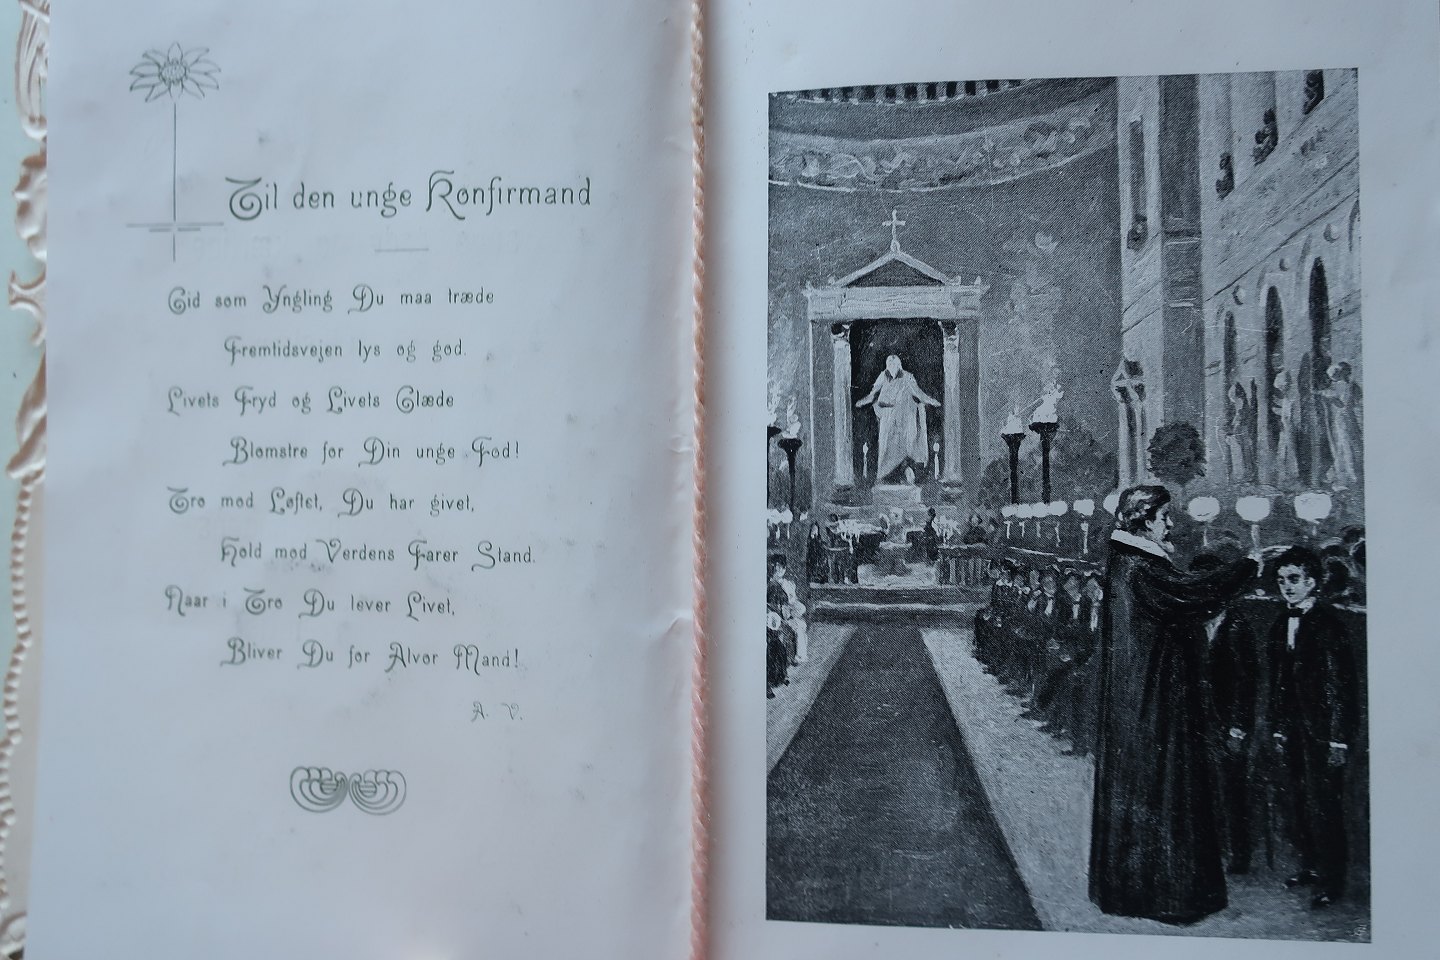 Til den unge Konfirmand
Gid som Yngling Du maa træde
Fremtidsvejen lys og god.
Livets Fryd og Livets Glæde
Blomstre for Din unge Fod!
Tro mod Løftet, Du har givet,
Hold mod Verdens Farer Stand.
Naar i Tro Du lever Livet,
Bliver Du for Alvor Mand!
A. V.